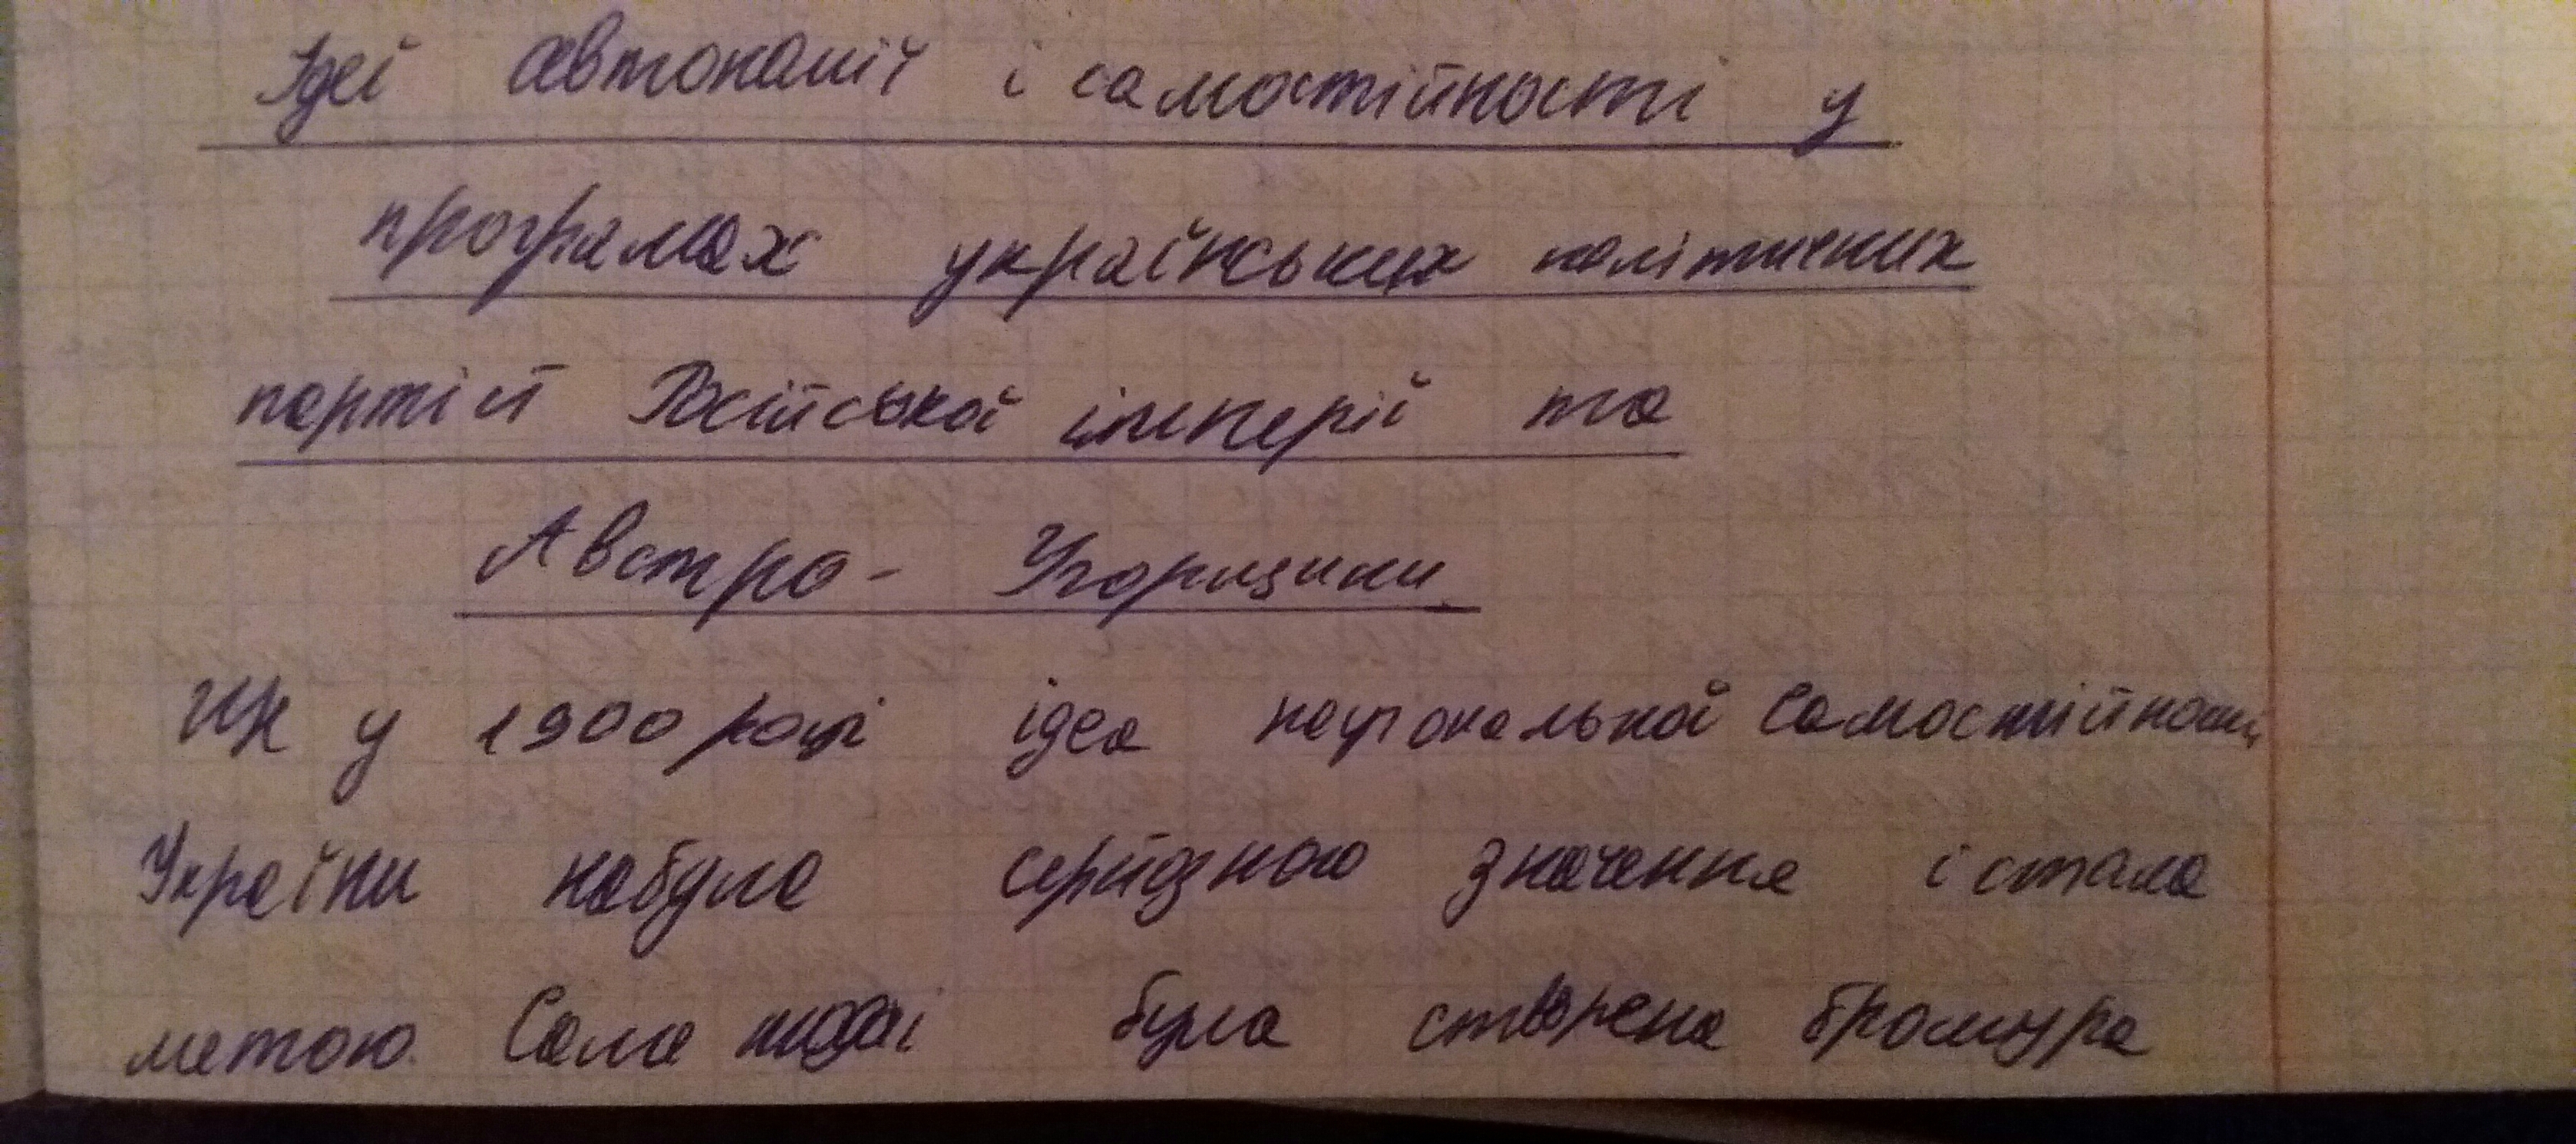 Ідеї автономії і самостійності у
програмах українських політичних
партій Російської імперії та
Австро - Угорщини.
Ще у 1900 році ідея національної самостійності
України набула серйозного значення і стала
метою. Саме тоді була створена брошура